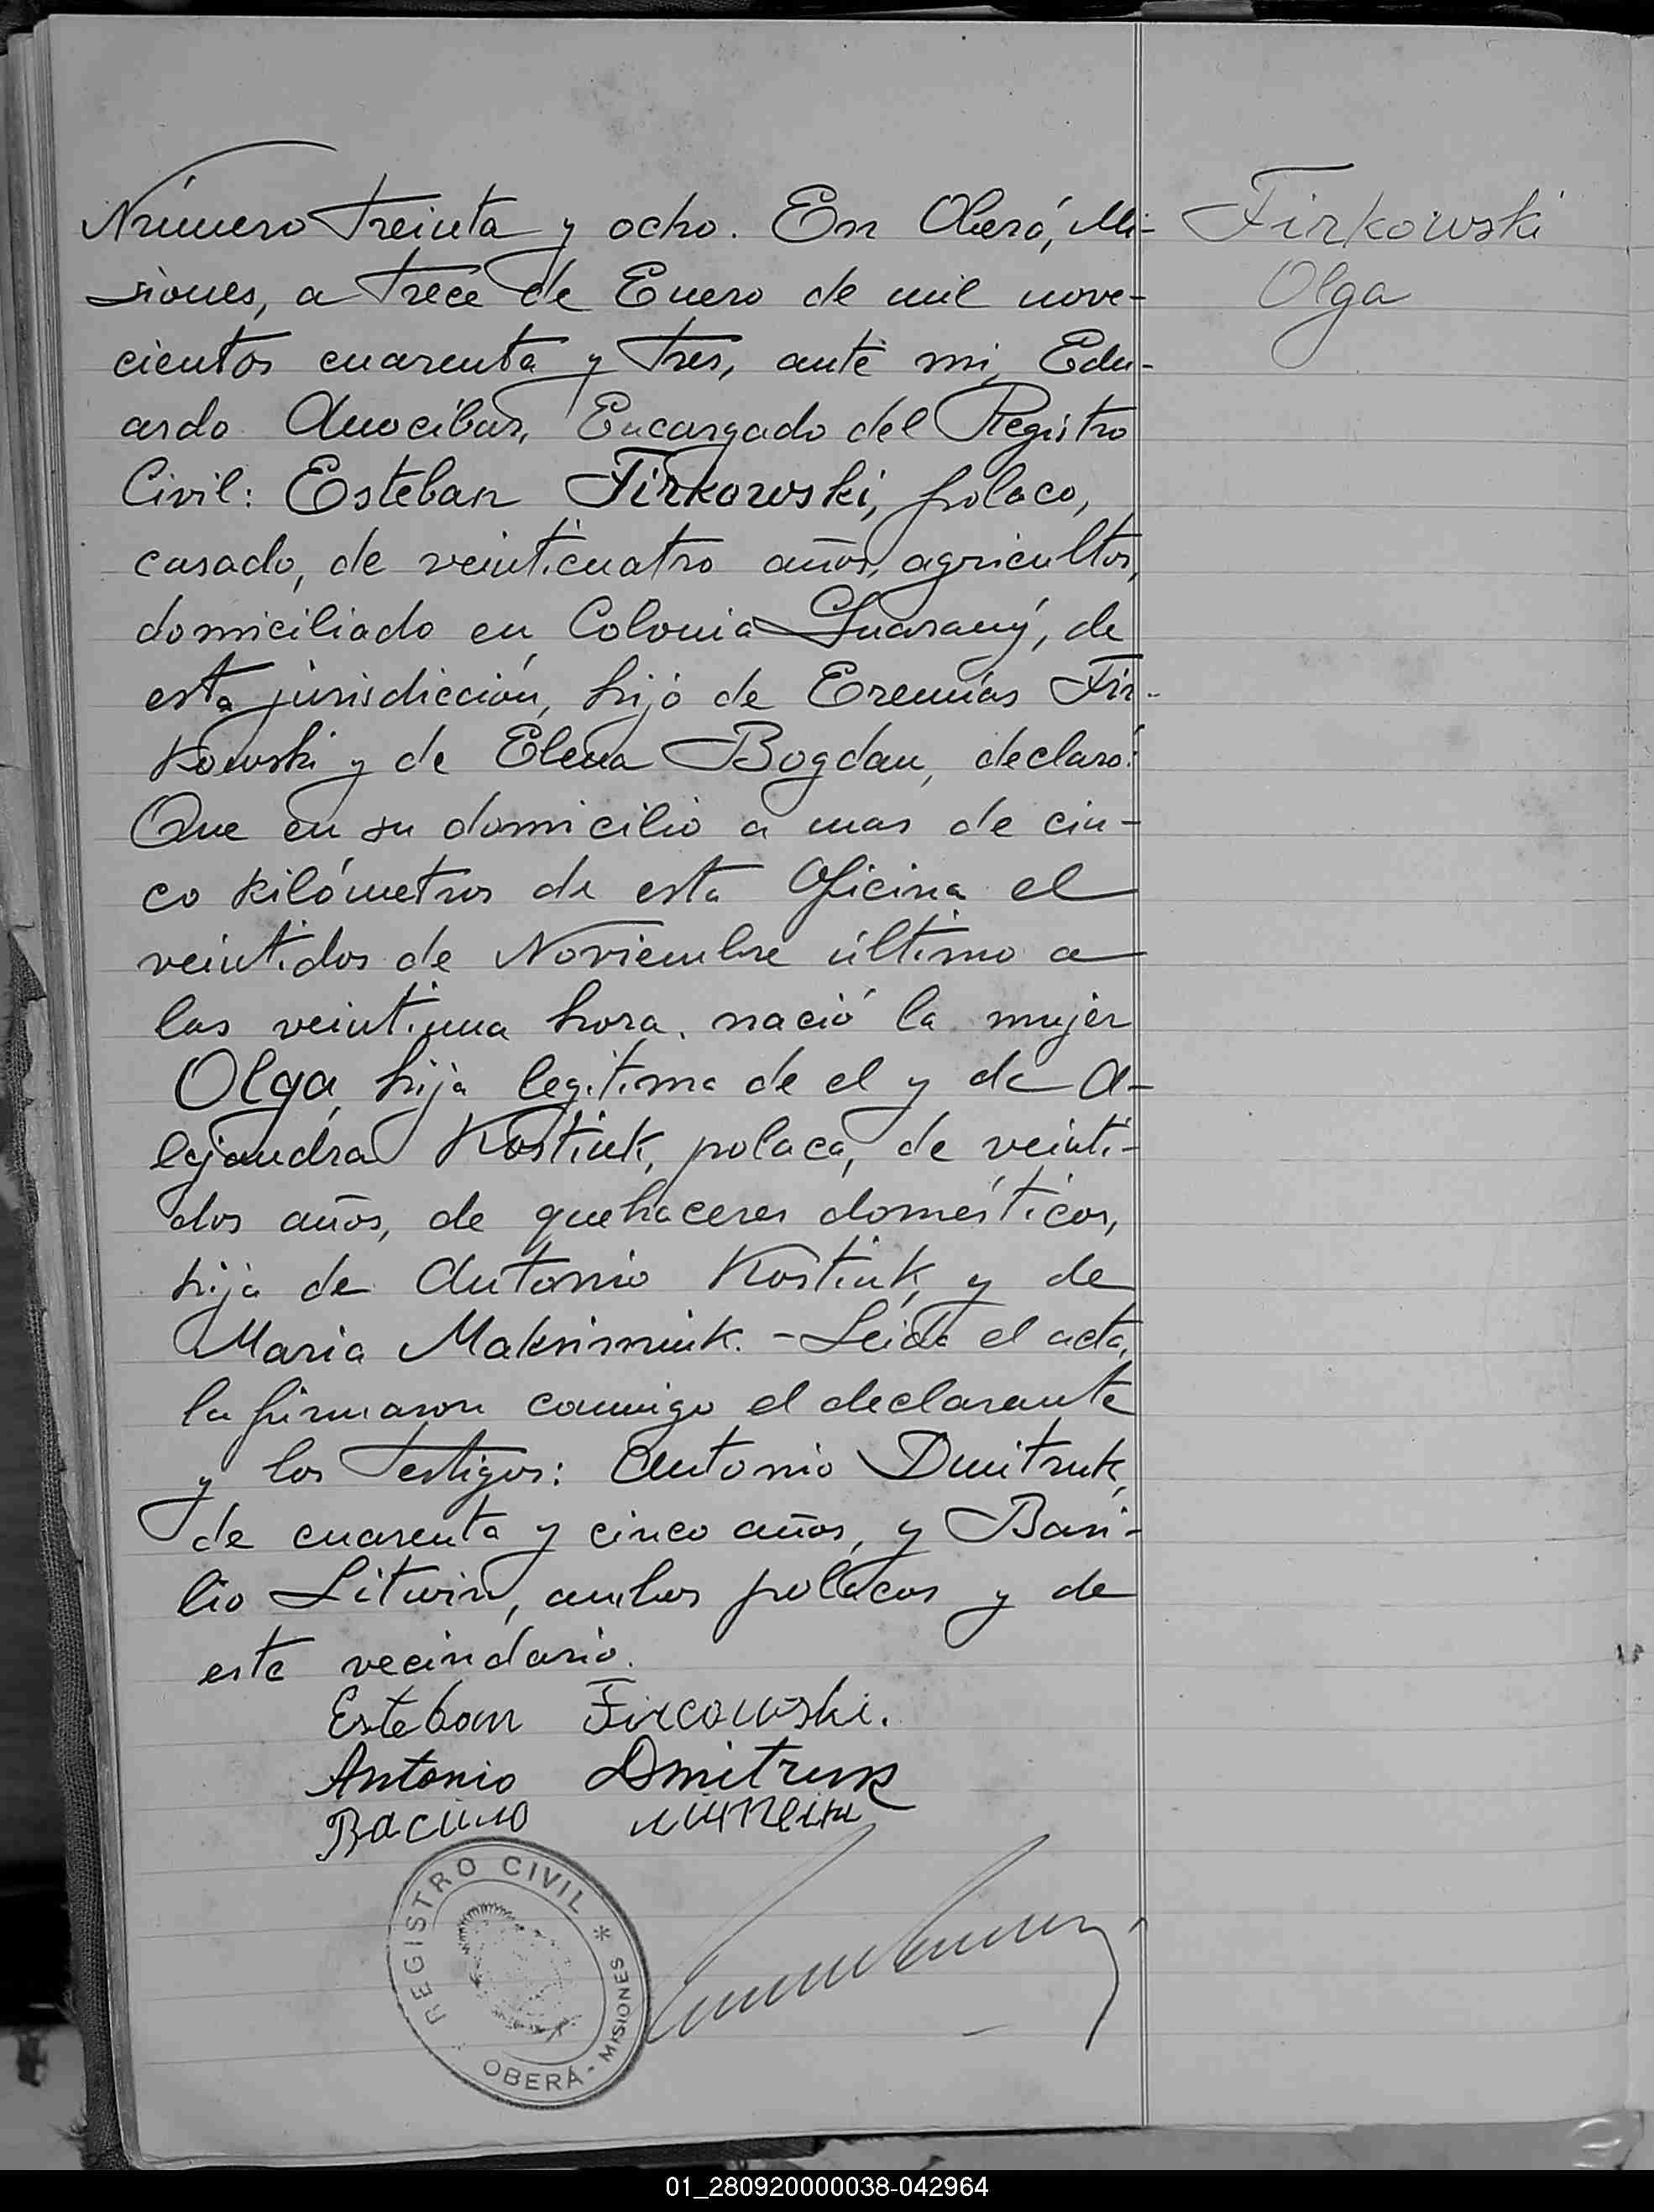 Número treinta y ocho. En Oberá, Mi-
siones, a trece de Enero de mil nove-
cientos cuarenta y tres, ante mi, Edu-
ardo Anocíbar, Encargado del Registro
Civil: Esteban Firkowski, polaco,
casado, de veinticuatro años, agricultor,
domiciliado en Colonia Guarany, de
esta jurisdicción, hijo de Eremías Fir-
kowski y de Elena Bogdan, declaró:
Que en su domicilio a mas de cin-
co kilómetros de esta Oficina el
veintidos de Noviembre último a
las veintiuna hora, nació la mujer
Olga, hija legitima de el y de A-
lejandra Kostiuk, polaca, de veinti-
dos años, de quehaceres domésticos,
hija de Antonio Kostiuk, y de
Maria Maksimiuk. - Leida el acta,
la firmaron conmigo el declarante
y los testigos: Antonio Dmitruk,
de cuarenta y cinco años, y Basi-
lio Litwin, ambos polacos y de
este vecindario.
Esteban Fircowski.
Antonio Dmitruk
Firkowski
Olga
REGISTRO CIVIL *
OBERÁ - MISIONES
01_280920000038-042964